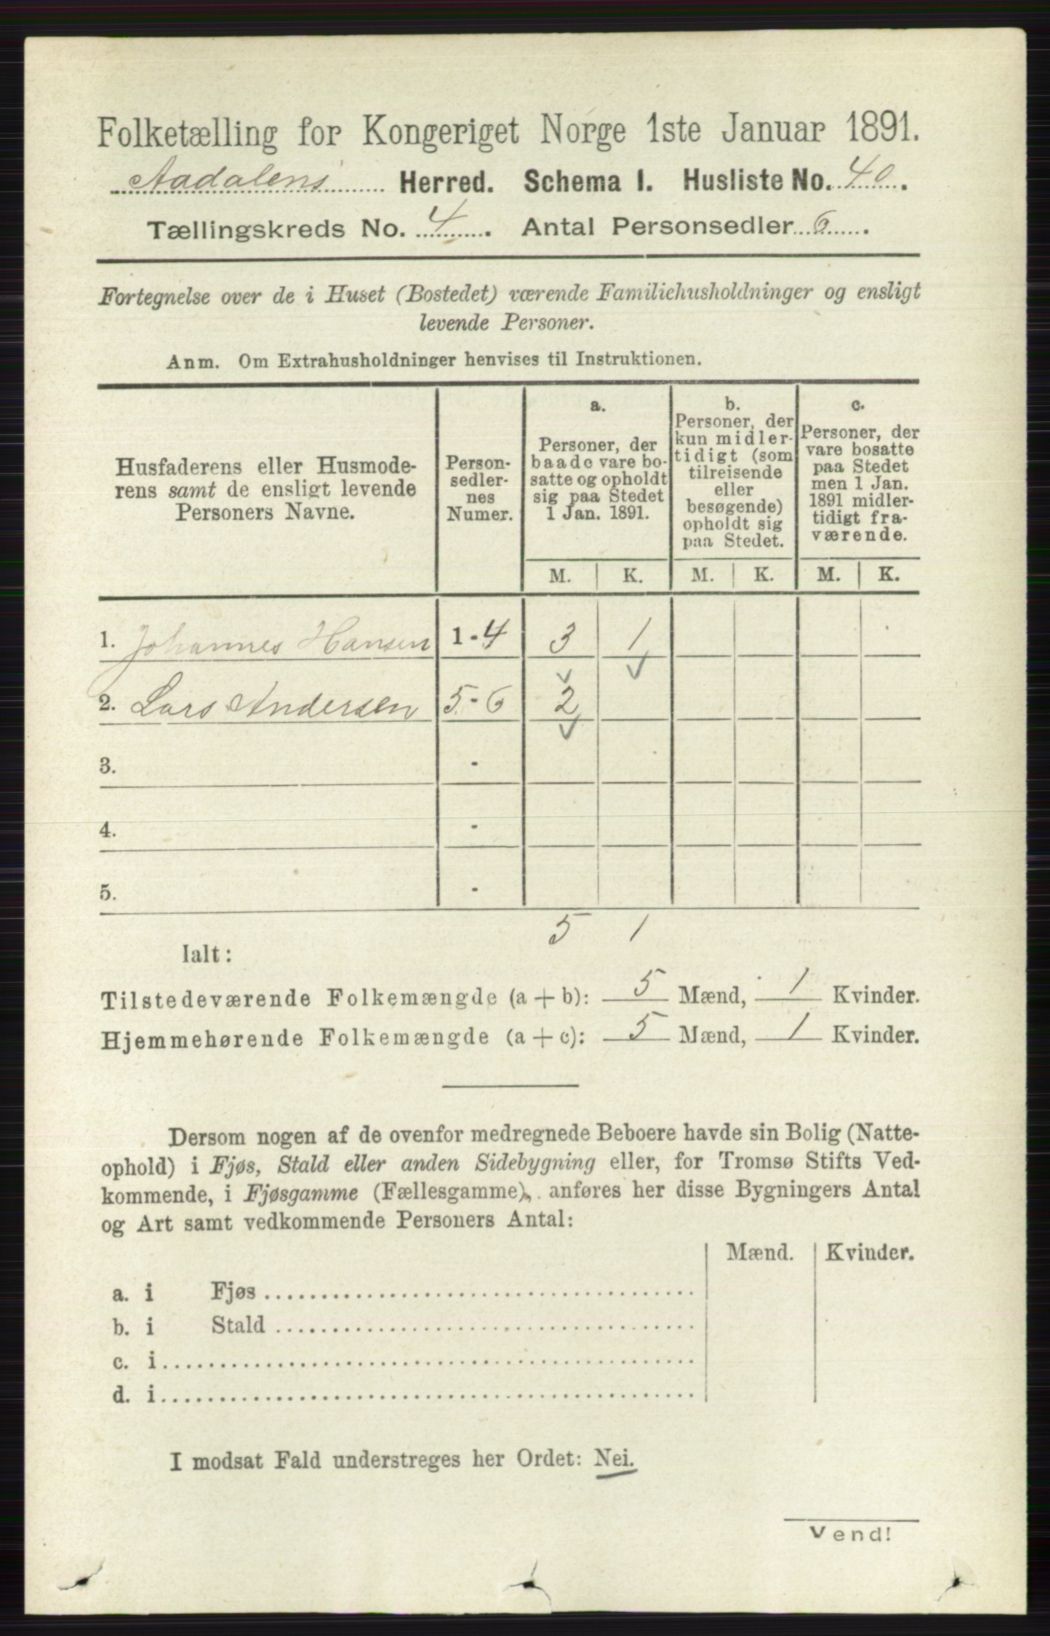 Folketælling for Kongeriget Norge 1ste Januar 1891.
Aadalens Herred. Schema I. Husliste No. 40.
Tællingskreds No. 4. Antal Personsedler 6.
Fortegnelse over de i Huset (Bostedet) værende Familiehusholdninger og ensligt
levende Personer.
Anm. Om Extrahusholdninger henvises til Instruktionen.
Husfaderens eller Husmode-
rens samt de ensligt levende
Personers Navne.
Person-
sedler-
nes
Numer.
a.
Personer, der
baade vare bo-
satte og opholdt
sig paa Stedet
1 Jan. 1891.
b.
Personer, der
kun midler-
tidigt (som
tilreisende
eller
besøgende)
opholdt sig
paa Stedet.
c.
Personer, der
vare bosatte
paa Stedet
men 1 Jan.
1891 midler-
tidigt fra-
værende.
M. K. M. K. M. K.
1. Johannes Hansen 1 - 4 3 1
2. Lars Andersen 5 - 6 2
3. -
4. -
5. -
5 1
Ialt:
Tilstedeværende Folkemængde (a + b): 5 Mænd, 1 Kvinder.
Hjemmehørende Folkemængde (a + c): 5 Mænd, 1 Kvinder.
Dersom nogen af de ovenfor medregnede Beboere havde sin Bolig (Natte-
ophold) i Fjøs, Stald eller anden Sidebygning eller, for Tromsø Stifts Ved-
kommende, i Fjøsgamme (Fællesgamme), anføres her disse Bygningers Antal
og Art samt vedkommende Personers Antal:
Mænd. Kvinder.
a. i Fjøs
b. i Stald
c. i
d. i
I modsat Fald understreges her Ordet: Nei.
Vend!